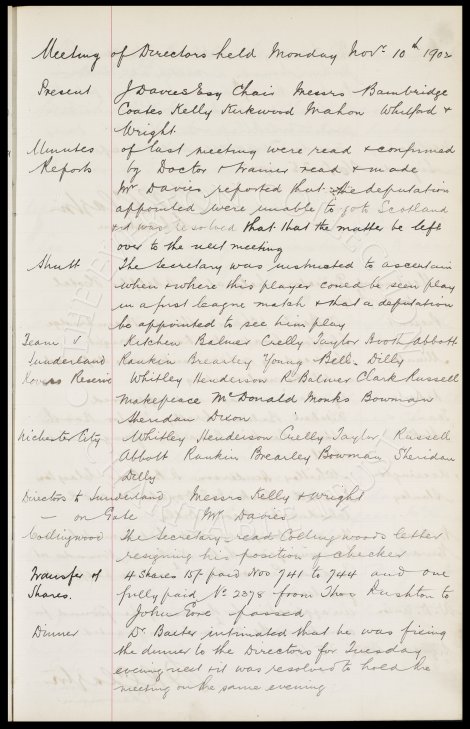 Meeting of Directors held Monday Novr 10th 1902
Present J Davies Esq Chair Messrs Bambridge
Coates Kelly Kirkwood Mahon Whitford &
Wright
Minutes of last meeting were read & confirmed
Reports by Doctor & Trainer read & made
Mr Davies reported that the deputation
appointed were unable to go to Scotland
& it was resolved that that the matter be left
over to the next meeting
Shutt The Secretary was instructed to ascertain
when & where this player could be seen play
in a first league match & that a deputation
be appointed to see him play
Team v Kitchen Balmer Crelly Taylor Booth Abbott
Sunderland Rankin Brearley Young Bell Dilly
Rovers Reserve Whitley Henderson R Balmer Clark Russell
Makepeace McDonald Monks Bowman
Sheridan Dixon
Chichester City Whitley Henderson Crelly Taylor Russell
Abbott Rankin Brearley Bowman Sheridan
Dilly
Directors to Sunderland Messrs Kelly & Wright
— on Gate Mr Davies
Collingwood The Secretary read Collingwoods letter
resigning his position of checker
Transfer of 4 Shares 15/- paid Nos 741 to 744 and one
Shares. fully paid No 2378 from Thos Rushton to
John Gore passed
Dinner Dr Baxter intimated that he was fixing
the dinner to the Directors for Tuesday
evening next & it was resolved to hold the
meeting on the same evening